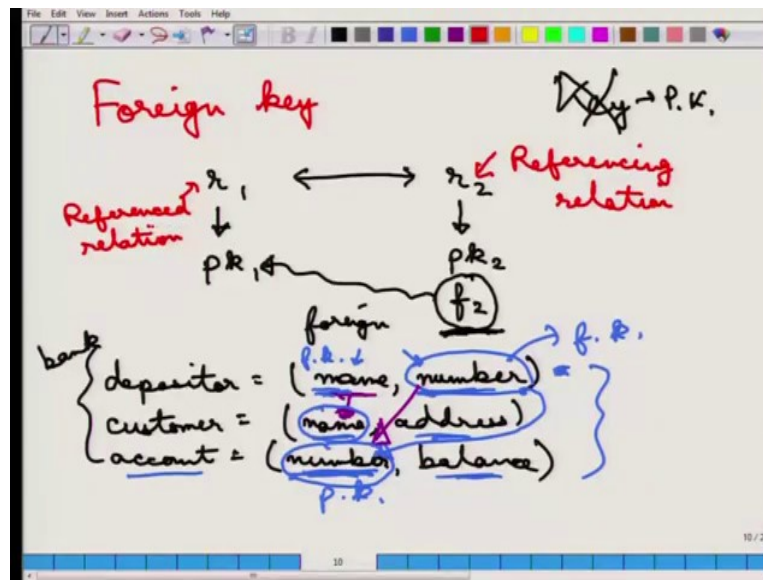 File Edit View Insert Actions Tools Help
Foreign key
P.K.
r1 ↔ r2
Referencing relation
Referenced relation
pk1 pk2
f2
foreign
f.k.
bank
p.k. ↓
depositor = (name, number)
customer = (name, address)
account = (number, balance)
p.k.
10
10/2